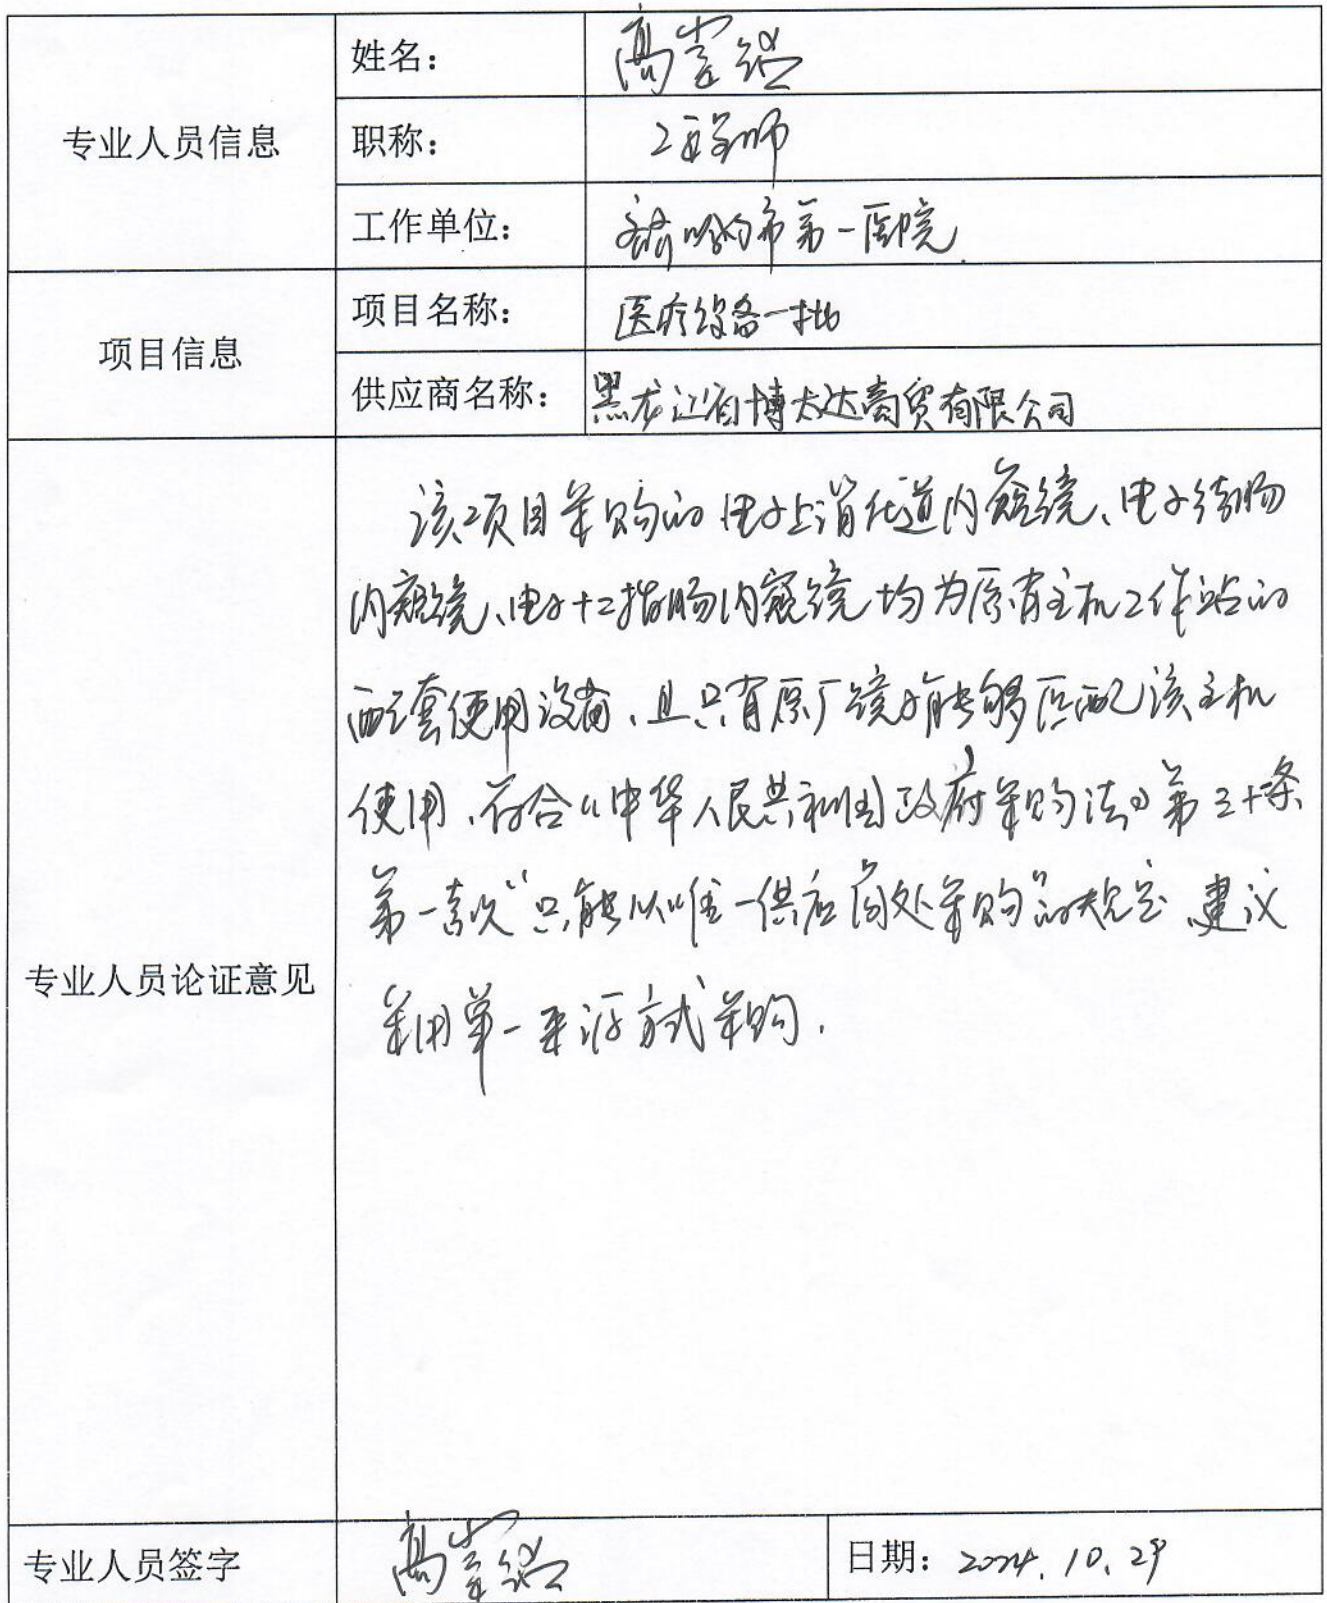 专业人员信息
姓名： 高
职称： 工程师
工作单位： 齐齐哈尔市第一医院
项目信息
项目名称： 医疗设备一批
供应商名称： 黑龙江省博太达商贸有限公司
专业人员论证意见
该项目采购的电子上消化道内窥镜、电子结肠
内窥镜、电子十二指肠内窥镜均为原有主机工作站的
配套使用设备，且只有原厂镜才能够匹配该主机
使用，符合《中华人民共和国政府采购法》第三十条
第一款“只能从唯一供应商处采购”的规定，建议
采用单一来源方式采购.
专业人员签字 高
日期： 2024.10.29